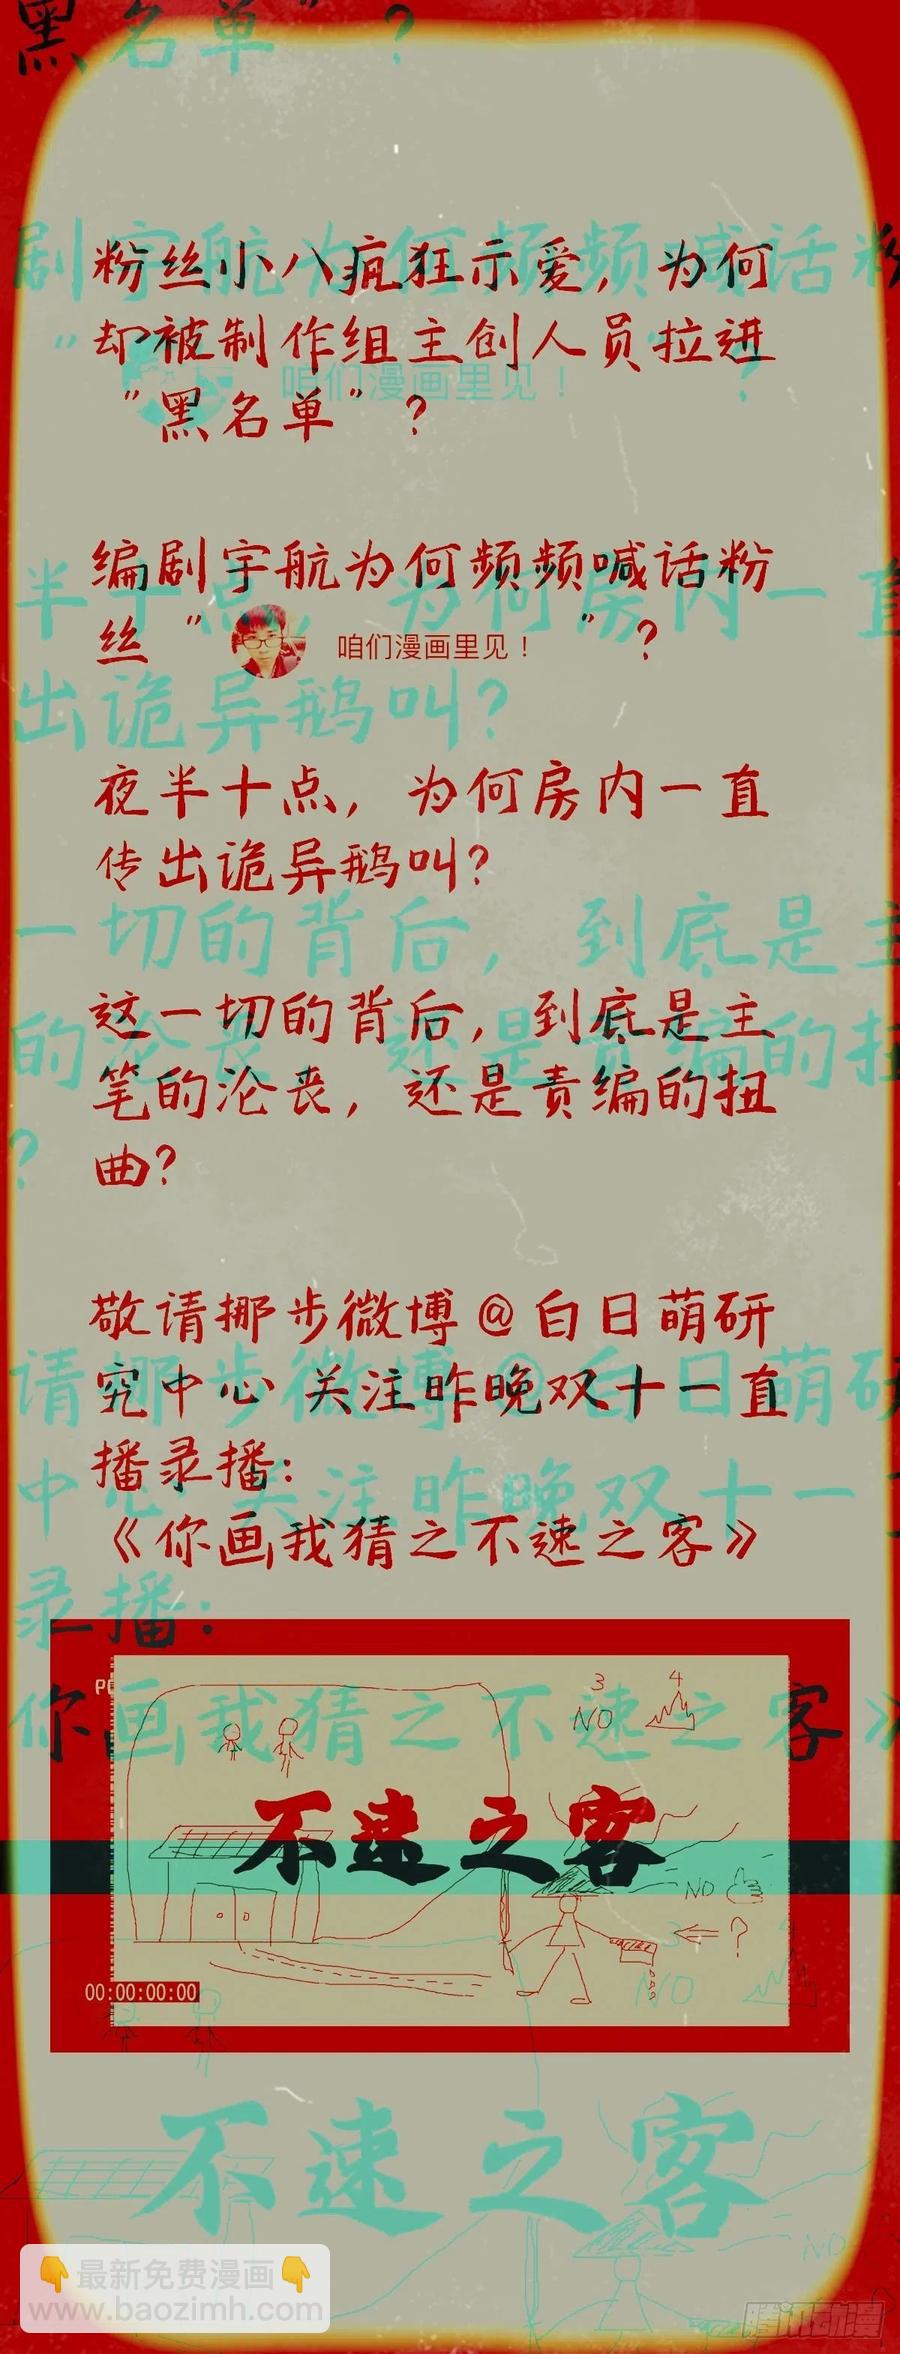 黑名单”?
粉丝小八疯狂示爱，为何
却被制作组主创人员拉进
“黑名单”?
编剧宇航为何频频喊话粉
丝“ 咱们漫画里见！ ”?
夜半十点，为何房内一直
传出诡异鹅叫?
这一切的背后，到底是主
笔的沦丧，还是责编的扭
曲?
敬请挪步微博@白日萌研
究中心 关注昨晚双十一直
播录播：
《你画我猜之不速之客》
3
4
NO
不速之客
NO
?
00:00:00:00
不速之客
NO
最新免费漫画
www.baozimh.com
腾讯动漫